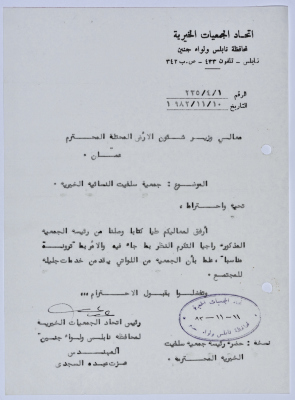 اتحاد الجمعيات الخيرية
لمحافظة نابلس ولواء جنين
نابلس - تلفون ٤٣٣ - ص.ب ٣٤٢
الرقم ٢٣٥/٤/١
التاريخ ١٩٨٢/١١/١٠
معالي وزير شئون الأرض المحتلة المحترم
عمان .
الموضوع : جمعية سلفيت النسائية الخيرية .
تحية واحتراما :
أرفق لمعاليكم طيا كتابا وصلنا من رئيسة الجمعية
المذكورة راجيا التكرم النظر بما جاء فيه والأمر بما ترونه
مناسبا ، علما بأن الجمعية من اللواتي يقدمن خدمات جليلة
للمجتمع .
وتفضلوا بقبول الاحترام ،،،
رئيس اتحاد الجمعيات الخيرية
لمحافظة نابلس ولواء جنين
المهندس
نسخة : حضرة رئيسة جمعية سلفيت
الخيرية المحترمة .